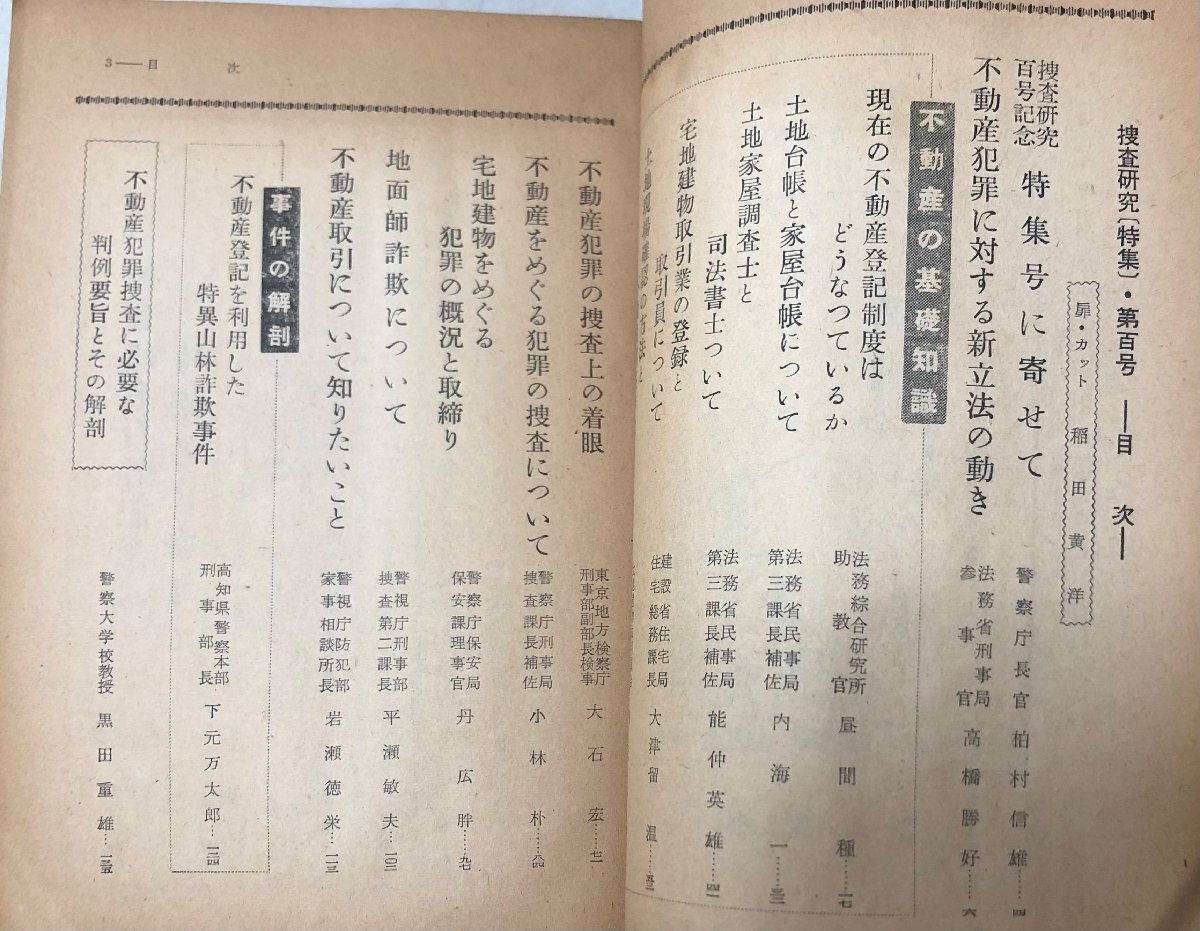 捜査研究〔特集〕・第百号 ―目 次―
扉・カット 稲田黄洋
捜査研究
百号記念
特集号に寄せて
警察庁長官 柏村信雄……四
不動産犯罪に対する新立法の動き
法務省刑事局
参事官
高橋勝好……六
不動産の基礎知識
現在の不動産登記制度は
どうなつているか
法務綜合研究所
助教官
昼間種……一七
土地台帳と家屋台帳について
法務省民事局
第三課長補佐
内海一……三三
土地家屋調査士と
司法書士ついて
法務省民事局
第三課長補佐
能仲英雄……四二
宅地建物取引業の登録と
取引員について
建設省住宅局
住宅総務課長
大津留温……五三
3―目 次
不動産犯罪の捜査上の着眼
東京地方検察庁
刑事部副部長検事
大石宏……七二
不動産をめぐる犯罪の捜査について
警察庁刑事局
捜査課長補佐
小林朴……八四
宅地建物をめぐる
犯罪の概況と取締り
警察庁保安局
保安課理事官
丹広胖……九七
地面師詐欺について
警視庁刑事部
捜査第二課長
平瀬敏夫……一〇三
不動産取引について知りたいこと
警視庁防犯部
家事相談所長
岩瀬徳栄……一一三
事件の解剖
不動産登記を利用した
特異山林詐欺事件
高知県警察本部
刑事部長
下元万太郎……一二四
不動産犯罪捜査に必要な
判例要旨とその解剖
警察大学校教授 黒田重雄……一三五